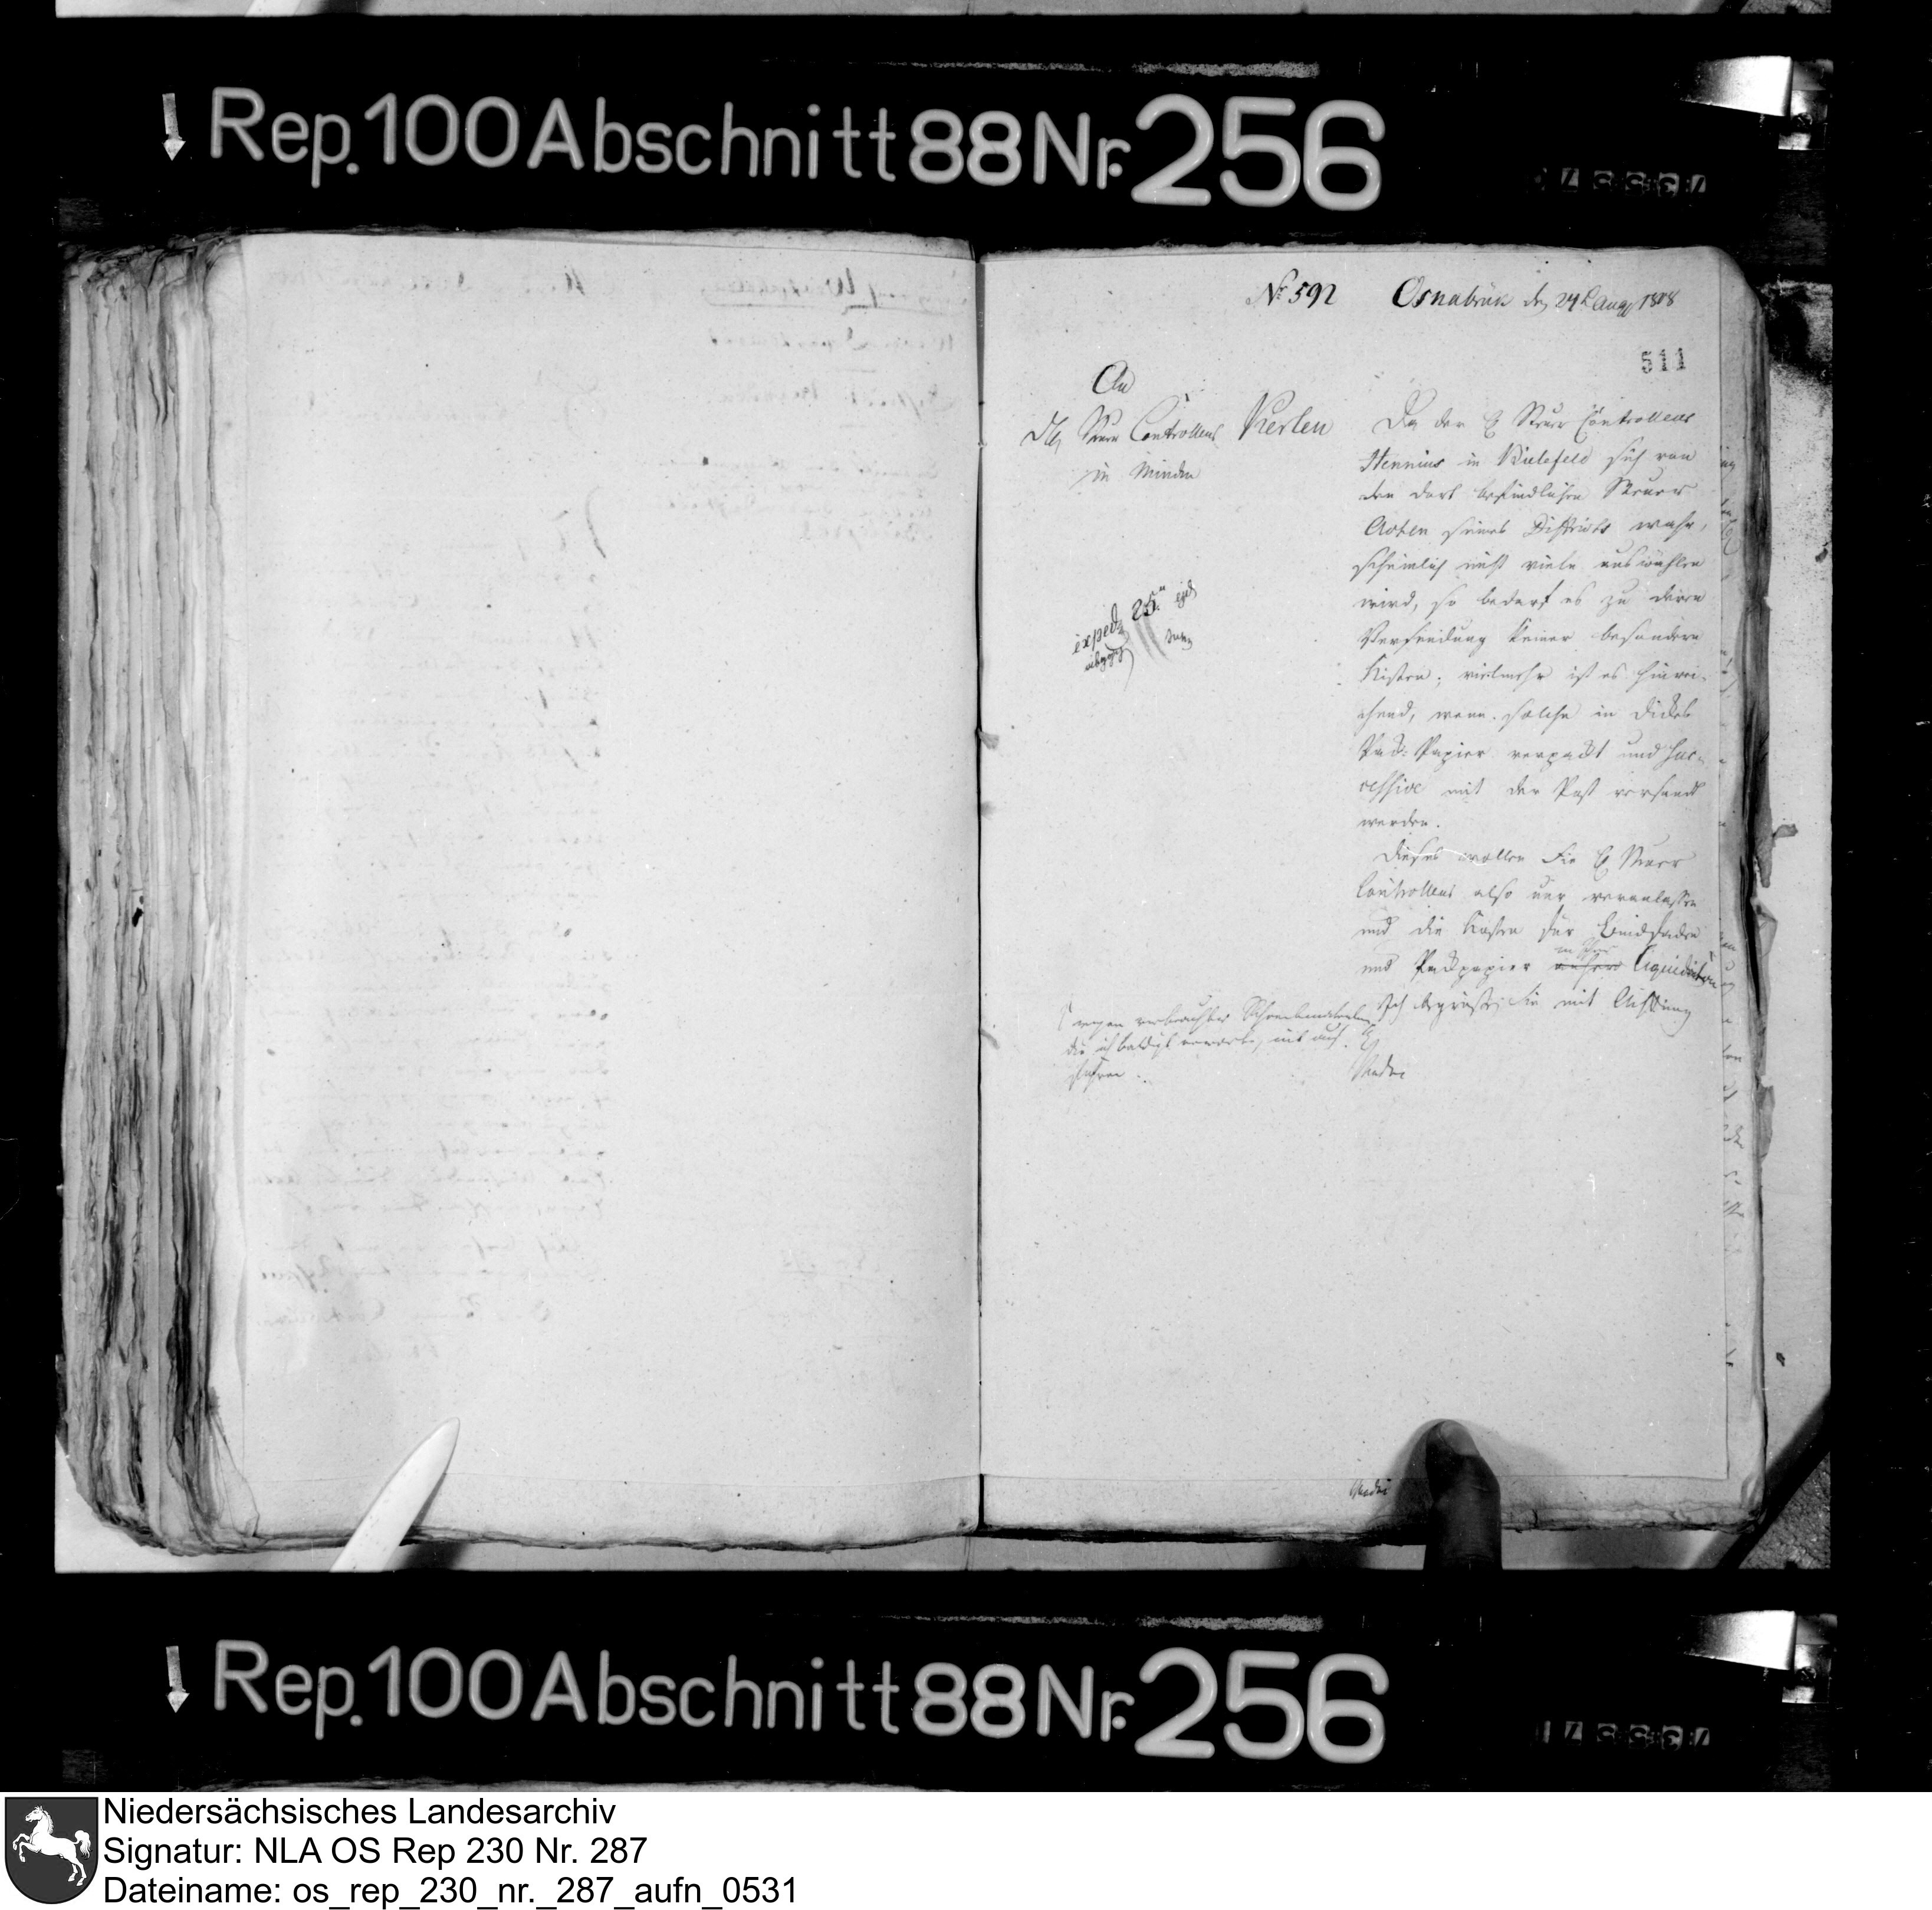 Rep. 100 Abschnitt 88 Nr. 256
No 592 Osnabrück den 24t Aug 1808
511
An
den Steuer Controlleur Kerlen
in Minden
exped. 25.
Da der H Steuer Controlleur
Hennius in Bielefeld sich von
den dort befindlichen Steuer
Acten seines Districts wahr,
scheinlich nicht viele auswählen
wird, so bedarf es zu deren
Versendung keiner besondern
Kisten; vielmehr ist es hinrei-
chend, wenn solche in dickes
Pack-Papier verpackt und suc-
cessive mit der Post versandt
werden.
Dieses wollen Sie H Steuer
Controlleur also nur veranlassen
und die Kosten für Bindfaden
und Packpapier in Ihre Liquidation
wegen verbrauchter Schreibmaterialien
die ich baldigst erwarte, mit auf-
führen.
Ich begrüße Sie mit Achtung
Rep. 100 Abschnitt 88 Nr. 256
Niedersächsisches Landesarchiv
Signatur: NLA OS Rep 230 Nr. 287
Dateiname: os_rep_230_nr._287_aufn_0531